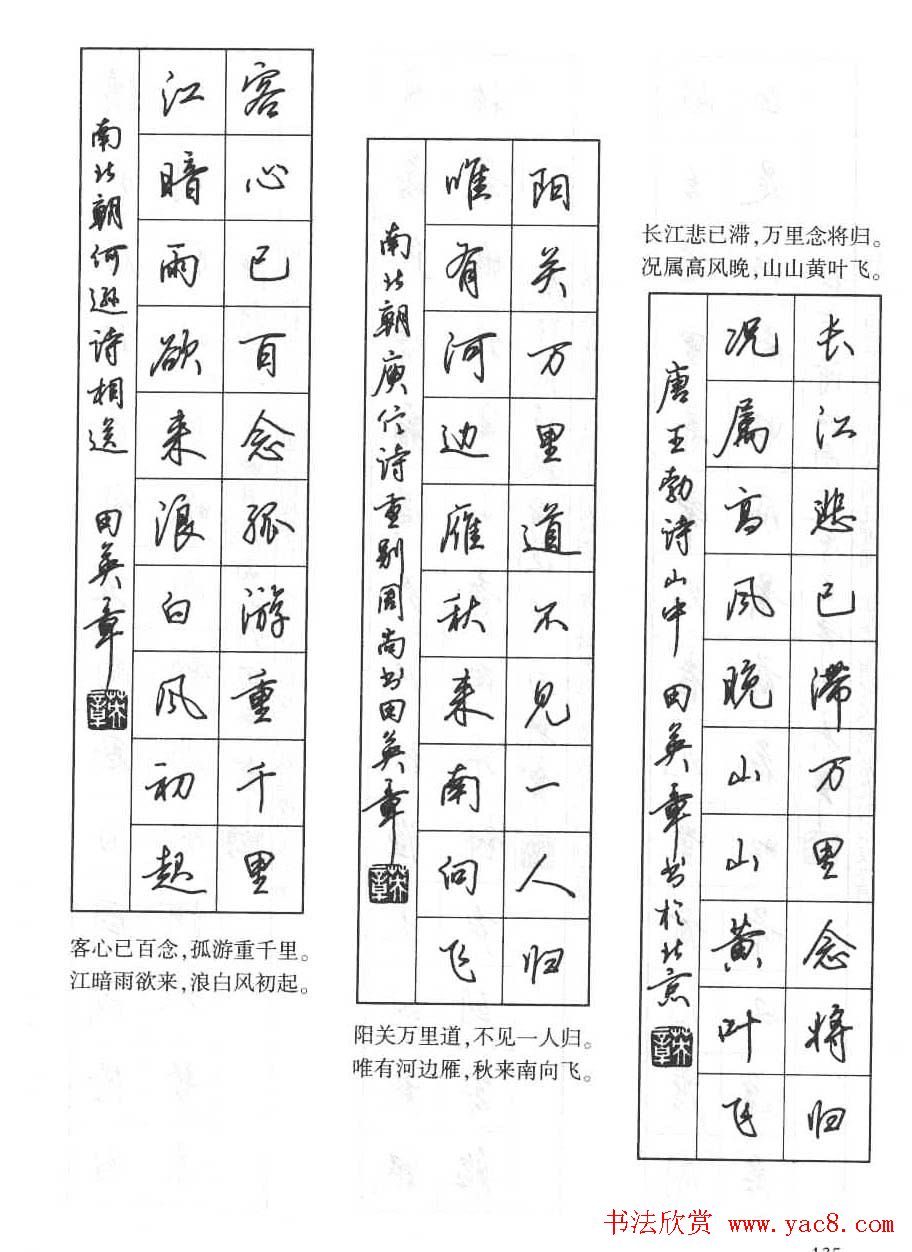 长江悲已滞,万里念将归。
况属高风晚,山山黄叶飞。
长江悲已滞万里念将归
况属高风晚山山黄叶飞
唐王勃诗山中 田英章书于北京
英章
阳关万里道不见一人归
唯有河边雁秋来南向飞
南北朝庾信诗重别周尚书田英章
英章
阳关万里道,不见一人归。
唯有河边雁,秋来南向飞。
客心已百念孤游重千里
江暗雨欲来浪白风初起
南北朝何逊诗相送 田英章
英章
客心已百念,孤游重千里。
江暗雨欲来,浪白风初起。
书法欣赏 www.yac8.com